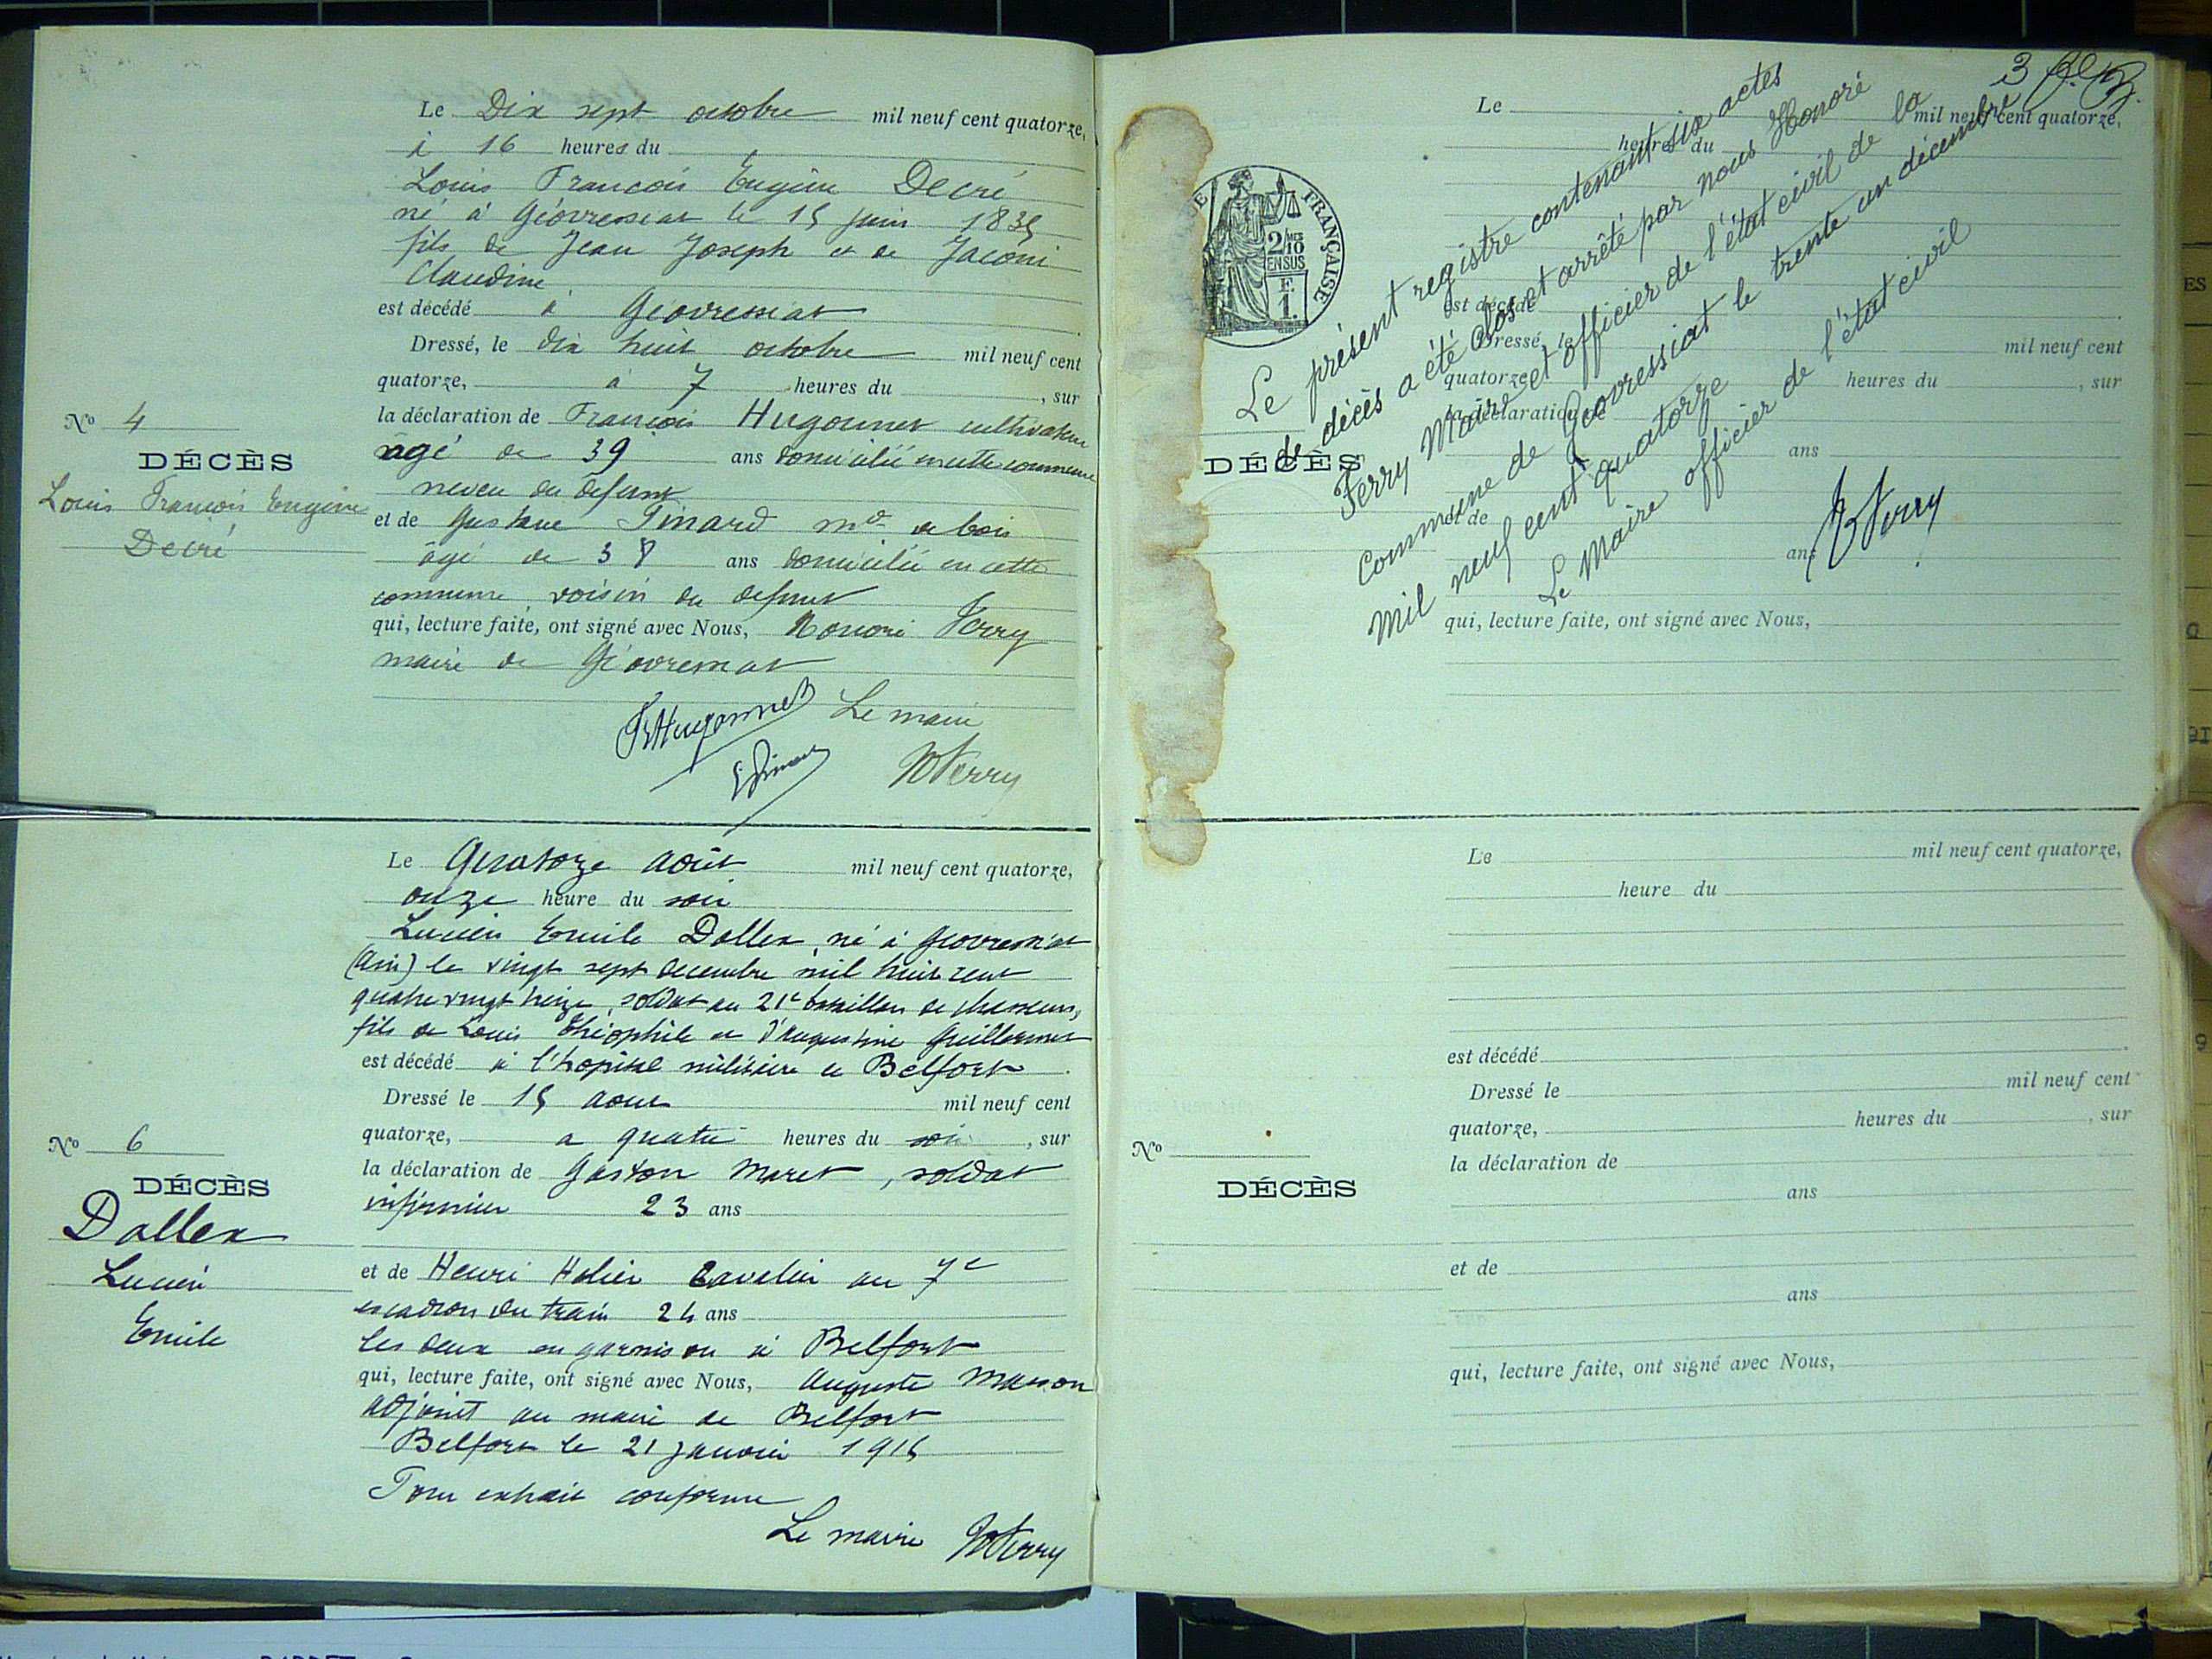 Le Dix sept octobre mil neuf cent quatorze,
à 16 heures du
Louis François Eugène Decré
né à Géovressiat le 15 juin 1835
fils de Jean Joseph et de Jaconi
Claudine
est décédé à Géovressiat
Dressé, le dix huit octobre mil neuf cent
quatorze, à 7 heures du , sur
la déclaration de François Hugonnet cultivateur
âgé de 39 ans domicilié en cette commune
neveu du défunt
et de Gustave Pinard md de bois
âgé de 38 ans domicilié en cette
commune voisin du défunt
qui, lecture faite, ont signé avec Nous, Honoré Ferry
maire de Géovressiat
Frs Hugonnet Le maire
G Pinard HFerry
No 4
DÉCÈS
Louis François Eugène
Decré
Le Quatorze août mil neuf cent quatorze,
onze heure du soir
Lucien Emile Dallex, né à Géovressiat
(Ain) le vingt sept décembre mil huit cent
quatre vingt treize, soldat au 21e bataillon de chasseurs,
fils de Louis Théophile et d'Augustine Guillermet
est décédé à l'hopital militaire de Belfort
Dressé le 15 août mil neuf cent
quatorze, a quatre heures du soir , sur
la déclaration de Gaston Maret, soldat
infirmier 23 ans
et de Henri Cavalier au 7e
escadron du train 24 ans
les deux en garnison à Belfort
qui, lecture faite, ont signé avec Nous, Auguste Masson
adjoint au maire de Belfort
Belfort le 21 janvier 1915
Pour extrait conforme
Le maire HFerry
No 6
DÉCÈS
Dallex
Lucien
Emile
3
Le mil neuf cent quatorze,
heures du
est décédé
Dressé, le mil neuf cent
quatorze, heures du , sur
la déclaration de
ans
et de
ans
qui, lecture faite, ont signé avec Nous,
DÉCÈS
FRANÇAISE
2/10
EN SUS
F.
1.
Le présent registre contenant six actes
de décès a été clos et arrêté par nous Honoré
Ferry Maire et officier de l'état civil de la
Commune de Géovressiat le trente un décembre
Mil neuf cent quatorze
Le Maire officier de l'état civil
HFerry
Le mil neuf cent quatorze,
heure du
est décédé
Dressé le mil neuf cent
quatorze, heures du , sur
la déclaration de
ans
et de
ans
qui, lecture faite, ont signé avec Nous,
No
DÉCÈS